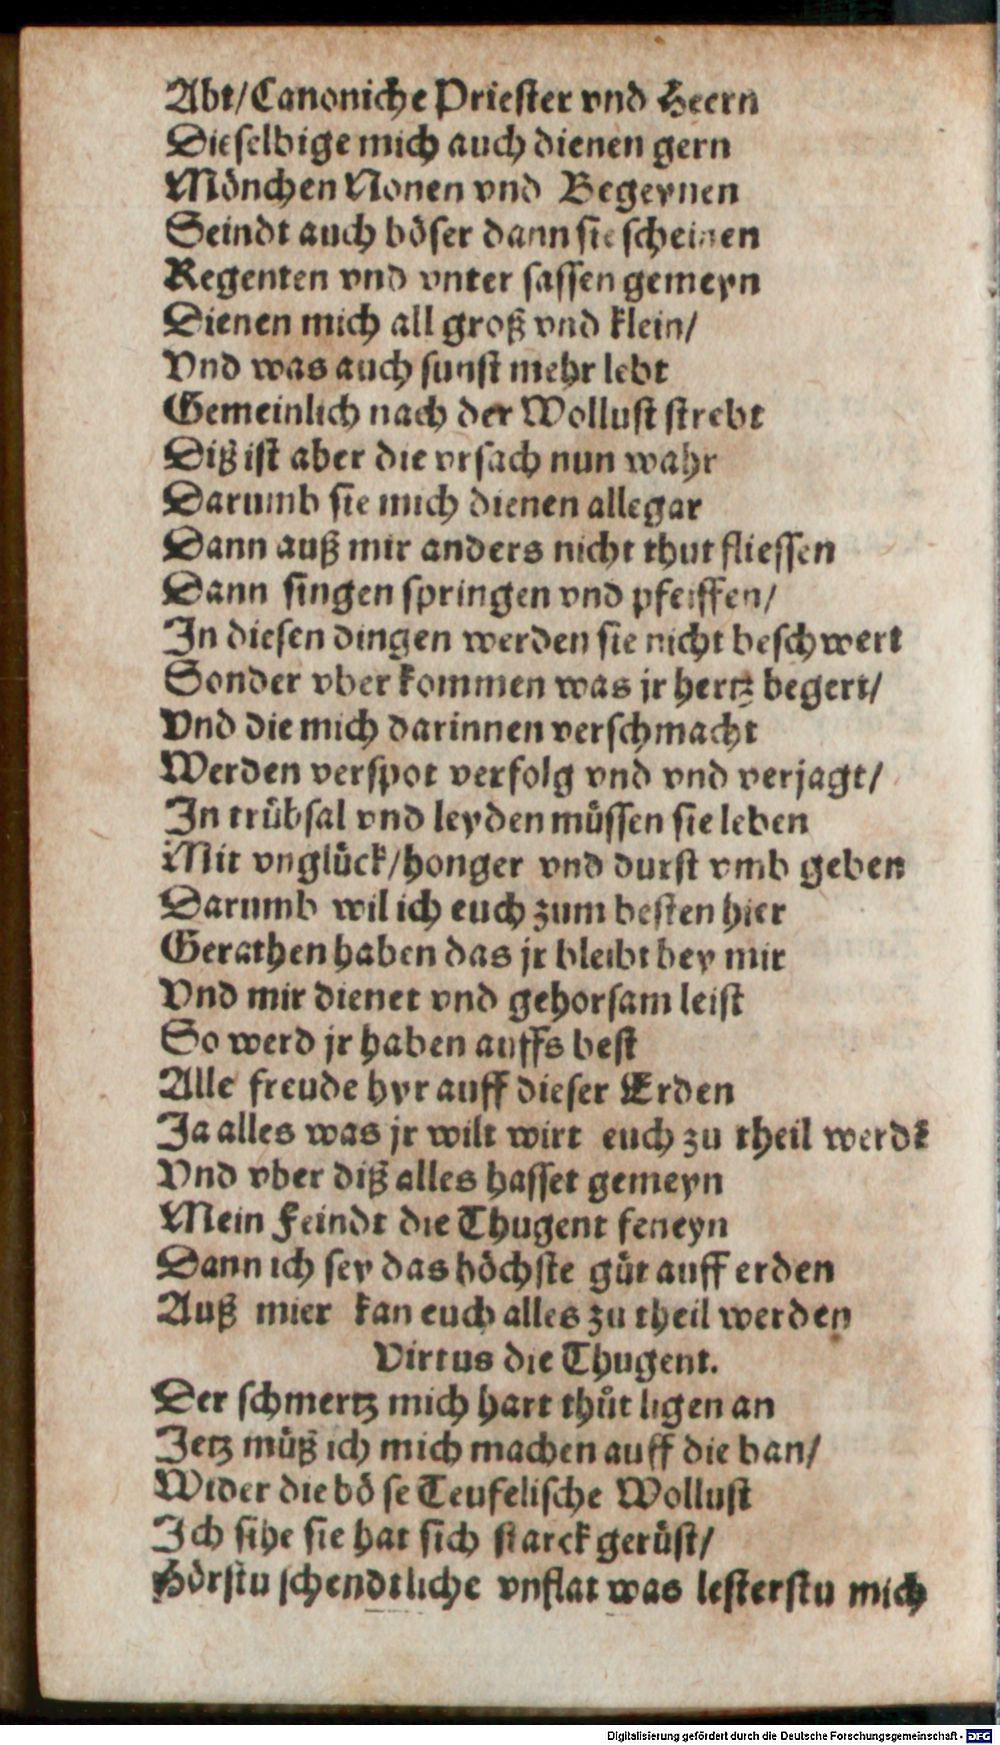 Abt/Canoniche Priester vnd Heern
Dieselbige mich auch dienen gern
Mönchen Nonen vnd Begeynen
Seindt auch böser dann sie scheinen
Regenten vnd vnter sassen gemeyn
Dienen mich all groß vnd klein/
Vnd was auch sunst mehr lebt
Gemeinlich nach der Wollust strebt
Diß ist aber die vrsach nun wahr
Darumb sie mich dienen alle gar
Dann auß mir anders nicht thut fliessen
Dann singen springen vnd pfeiffen/
In diesen dingen werden sie nicht beschwert
Sonder vber kommen was jr hertz begert/
Vnd die mich darinnen verschmacht
Werden verspot verfolg vnd vnd verjagt/
In trübsal vnd leyden müssen sie leben
Mit vnglück/honger vnd durst vmb geben
Darumb wil ich euch zum besten hier
Gerathen haben das jr bleibt bey mir
Vnd mir dienet vnd gehorsam leist
So werd jr haben auffs best
Alle freude hyr auff dieser Erden
Ja alles was jr wilt wirt euch zu theil werdē
Vnd vber diß alles hasset gemeyn
Mein Feindt die Thugent feneyn
Dann ich sey das höchste gůt auff erden
Auß mier kan euch alles zu theil werden
Virtus die Thugent.
Der schmertz mich hart thůt ligen an
Jetz můß ich mich machen auff die ban/
Wider die bö se Teufelische Wollust
Ich sihe sie hat sich starck gerüst/
Hörstu schendtliche vnflat was lesterstu mich
Digitalisierung gefördert durch die Deutsche Forschungsgemeinschaft - DFG